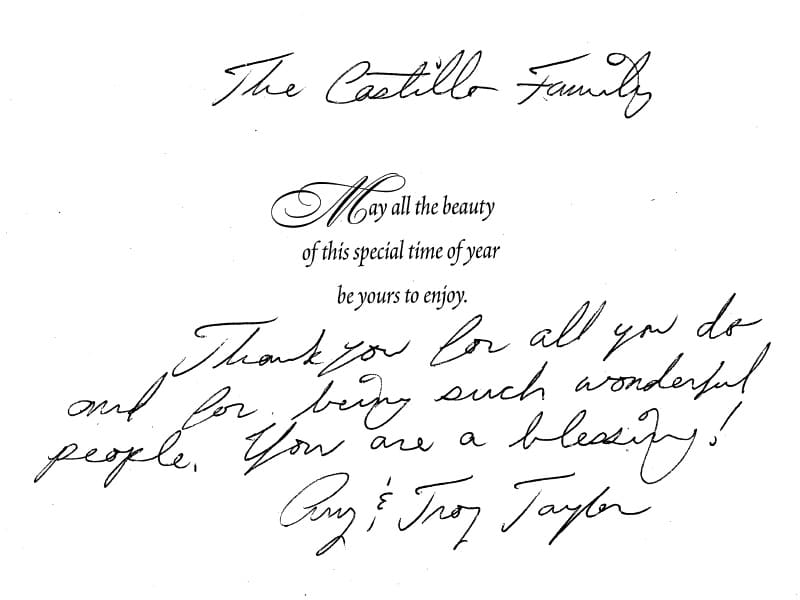 The Castillo Family
May all the beauty
of this special time of year
be yours to enjoy.
Thank you for all you do
and for being such wonderful
people. You are a blessing!
Amy & Troy Taylor